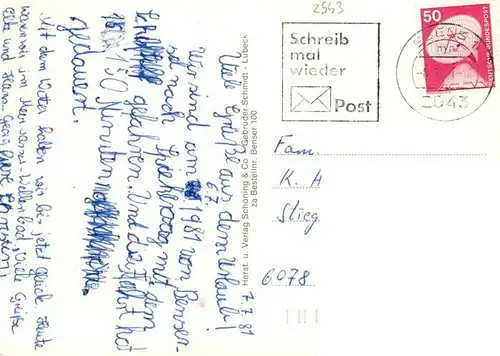 2543
Schreib
mal
wieder
Post
50
DEUTSCHE BUNDESPOST
2943
Fam.
K. H
Stieg
6078
7.7.81
Viele Grüße aus dem Urlaub!
Wir sind am 6.7. 1981 von Benser-
siel nach Spiekeroog mit dem
gefahren. Und die Fahrt hat
150 Minuten
gedauert.
Mit dem Wetter haben wir bis jetzt Glück. Heute
waren wir im Meerwasser-Wellenbad. Viele Grüße
Elke und Hans-Georg
Herst. u. Verlag Schöning & Co + Gebrüder Schmidt - Lübeck
za Bestellnr. Benser 100